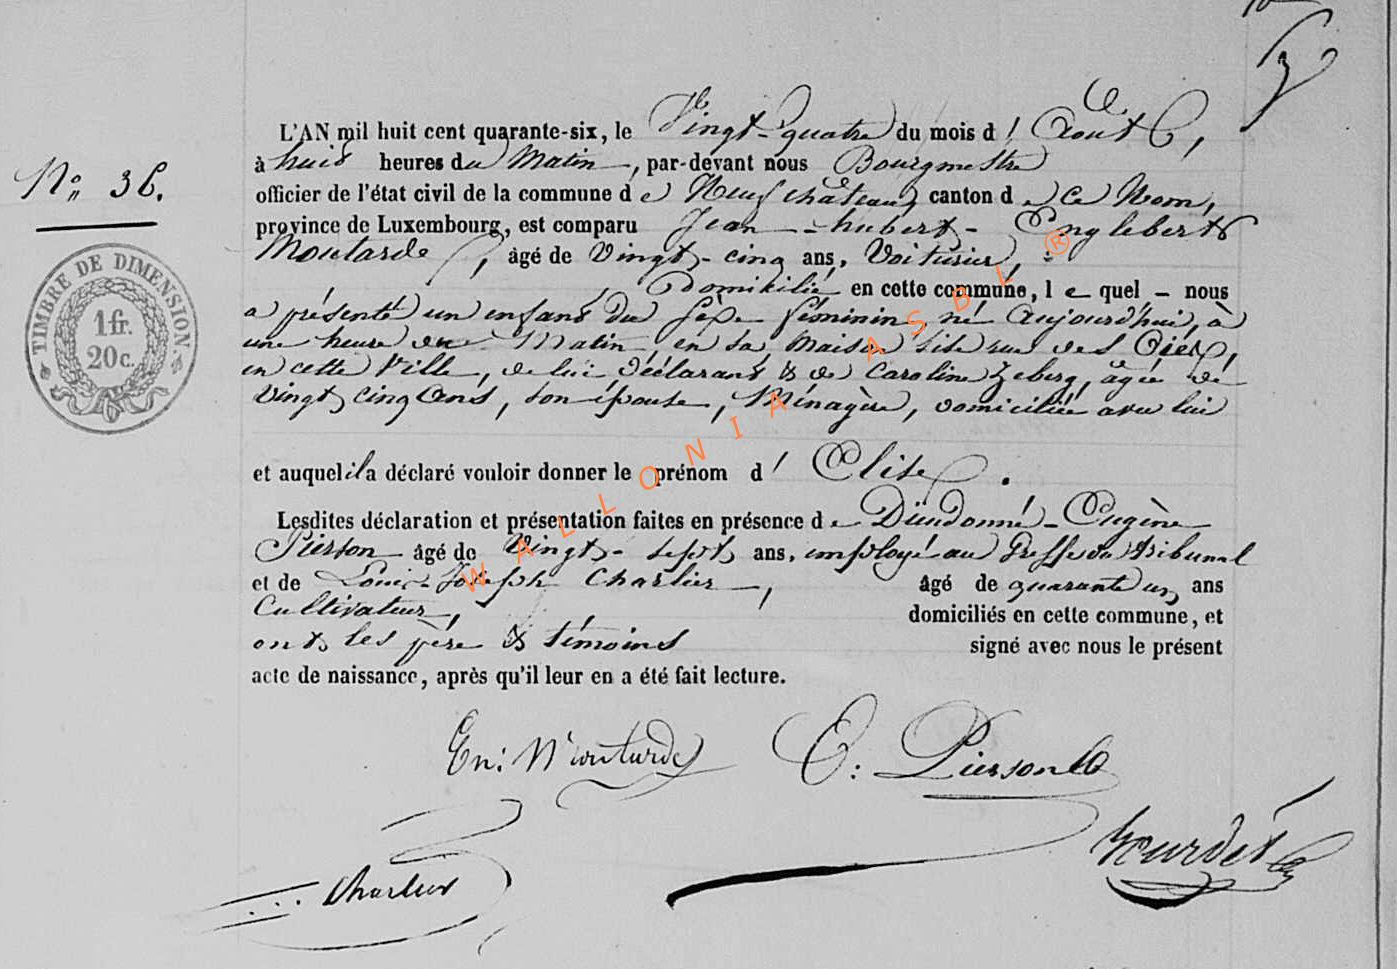 L'AN mil huit cent quarante-six, le Vingt-quatre du mois d'Août,
N° 36.
à huit heures du Matin, par-devant nous Bourgmestre
officier de l'état civil de la commune de Neufchâteau, canton de ce Nom,
province de Luxembourg, est comparu Jean-hubert-Englebert
Moutarde, âgé de Vingt-cinq ans, Voiturier,
Domicilié en cette commune, lequel - nous
a présenté un enfant du sèxe féminin, né Aujourd'hui, à
une heure du Matin, en sa Maison sise rue des
en cette Ville, de lui déclarant & de Caroline Zeberg, âgée de
Vingt cinq Ans, son épouse, Ménagère, domiciliée avec lui
et auquel il a déclaré vouloir donner le prénom d'Elise.
Lesdites déclaration et présentation faites en présence de Dieudonné-Eugène
Pierson âgé de Vingt-sept ans, employé au Greffe du tribunal
et de Louis-Joseph Charlier, âgé de quarante un ans
Cultivateur, domiciliés en cette commune, et
ont les père & témoins signé avec nous le présent
acte de naissance, après qu'il leur en a été fait lecture.
En: Moutarde E: Pierson
Charlier
TIMBRE DE DIMENSION
1 fr.
20 c.
WALLONIA ASBL ®